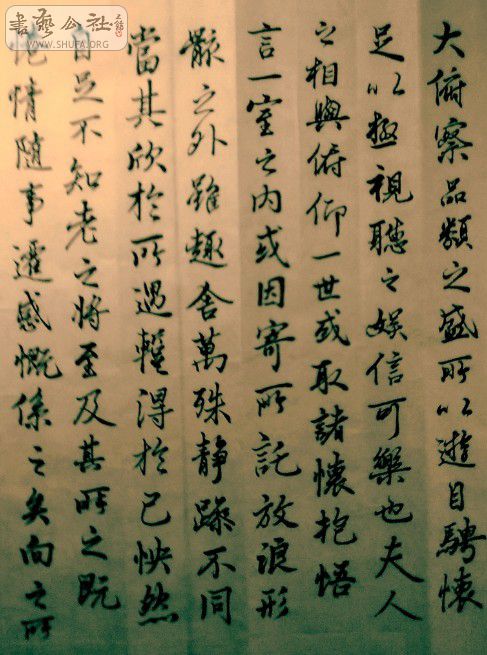 書藝公社
WWW.SHUFA.ORG
大俯察品類之盛所以遊目騁懷
足以極視聽之娛信可樂也夫人
之相與俯仰一世或取諸懷抱悟
言一室之內或因寄所託放浪形
骸之外雖趣舍萬殊靜躁不同
當其欣於所遇輕得於己怏然
自足不知老之將至及其所之既
惓情隨事遷感慨係之矣向之所